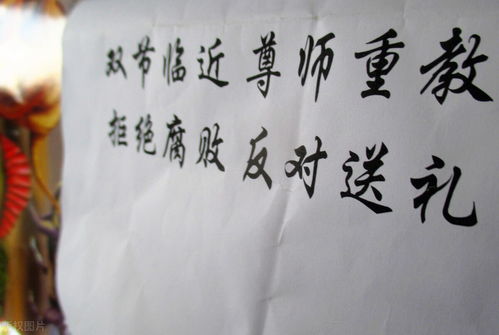 双节临近尊师重教
拒绝腐败反对送礼
版权图片